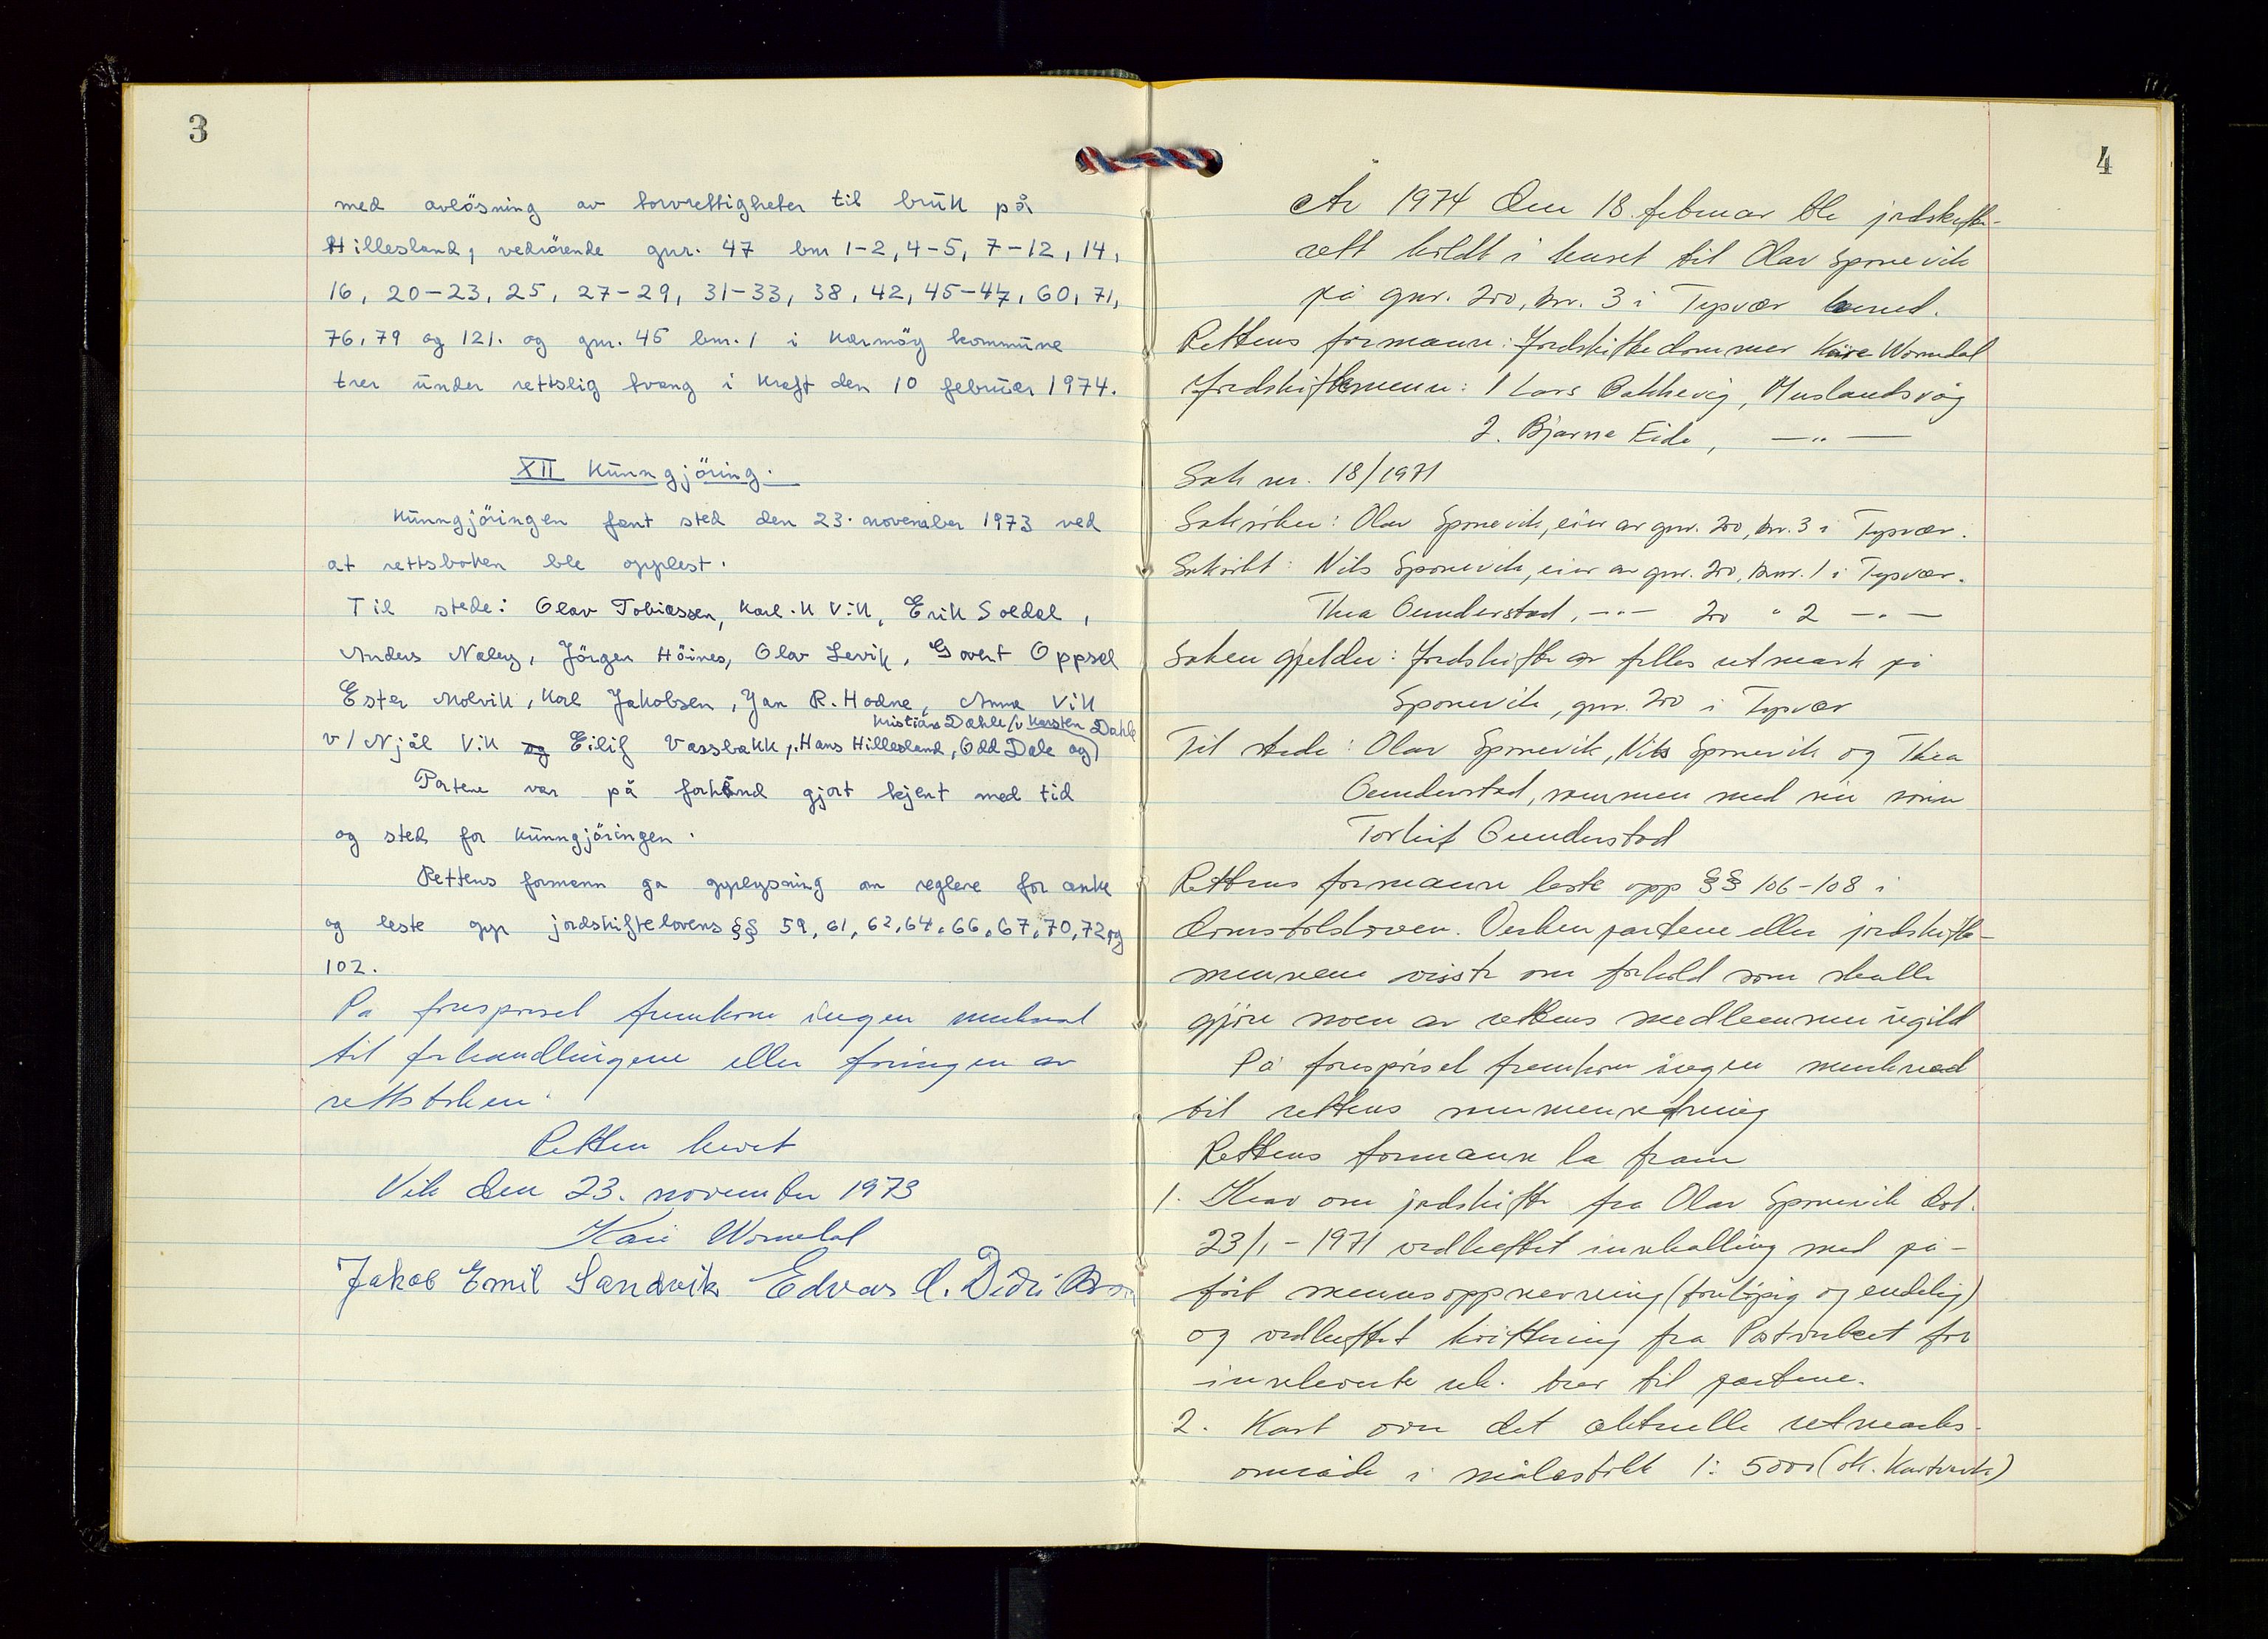 3
med avløsning av torvrettigheter til bruk på
Hillesland, vedrørende gnr. 47 bnr 1-2, 4-5, 7-12, 14,
16, 20-23, 25, 27-29, 31-33, 38, 42, 45-47, 60, 71,
76, 79 og 121. og gnr. 45 bnr. 1 i Karmøy kommune
trer under rettslig tvang i kraft den 10 februar 1974.
XII Kunngjöring.
Kunngjöringen fant sted den 23. november 1973 ved
at rettsboken ble opplest.
Til stede: Olav Tobiassen, Karl. K Vik, Erik Soldal,
Anders Naley, Jörgen Höines, Olav Levik, Govert Oppsal
Ester Molvik, Karl Jakobsen, Jan R. Hodne, Anna Vik
Kristian Dahle/v Karsten Dahle
v/Njål Vik og Eilif Vassbakk, Hans Hillesland, Odd Dale og)
Partene var på forhånd gjort kjent med tid
og sted for kunngjöringen.
Rettens formann ga opplysning om reglene for anke
og leste opp jordskiftelovens §§ 59, 61, 62, 64, 66, 67, 70, 72, og
102.
På forespørsel fremkom ingen merknad
til forhandlingene eller føringen av
rettsboken.
Retten hevet
Vik den 23. november 1973
Kåre Wormdal
Jakob Emil Sandvik Edvar D. Didriksen
4
År 1974 den 18. februar ble jordskifte-
rett holdt i huset til Olav Sponevik
på gnr. 200, bnr. 3 i Tysvær herred.
Rettens formann: Jordskiftedommer Kåre Wormdal
Jordskiftemenn: 1 Lars Bakkevig, Auslandsvåg
2. Bjarne Eide, —"—
Sak nr. 18/1971
Saksøker: Olav Sponevik, eier av gnr. 200, bnr. 3 i Tysvær.
Saksøkt: Nils Sponevik, eier av gnr. 200, bnr. 1 i Tysvær.
Thea Gunderstad, —"— 200 " 2 —"—
Saken gjelder: Jordskifte av felles utmark på
Sponevik, gnr. 200 i Tysvær
Til stede: Olav Sponevik, Nils Sponevik og Thea
Gunderstad, sammen med sin sønn
Torleif Gunderstad
Rettens formann leste opp §§ 106-108 i
domstolsloven. Verken partene eller jordskifte-
mennene visste om forhold som skulle
gjøre noen av rettens medlemmer ugild
På forespørsel fremkom ingen merknad
til rettens sammensetning
Rettens formann la fram
1. Krav om jordskifte fra Olav Sponevik dat.
23/1-1971 vedheftet innkalling med på-
ført mennsoppnevning (foreløpig og endelig)
og vedheftet kvittering fra Postverket for
innleverte rek. brev til partene.
2. Kart over det aktuelle utmarks-
område i målestokk 1:5000 (øk. kartverk)